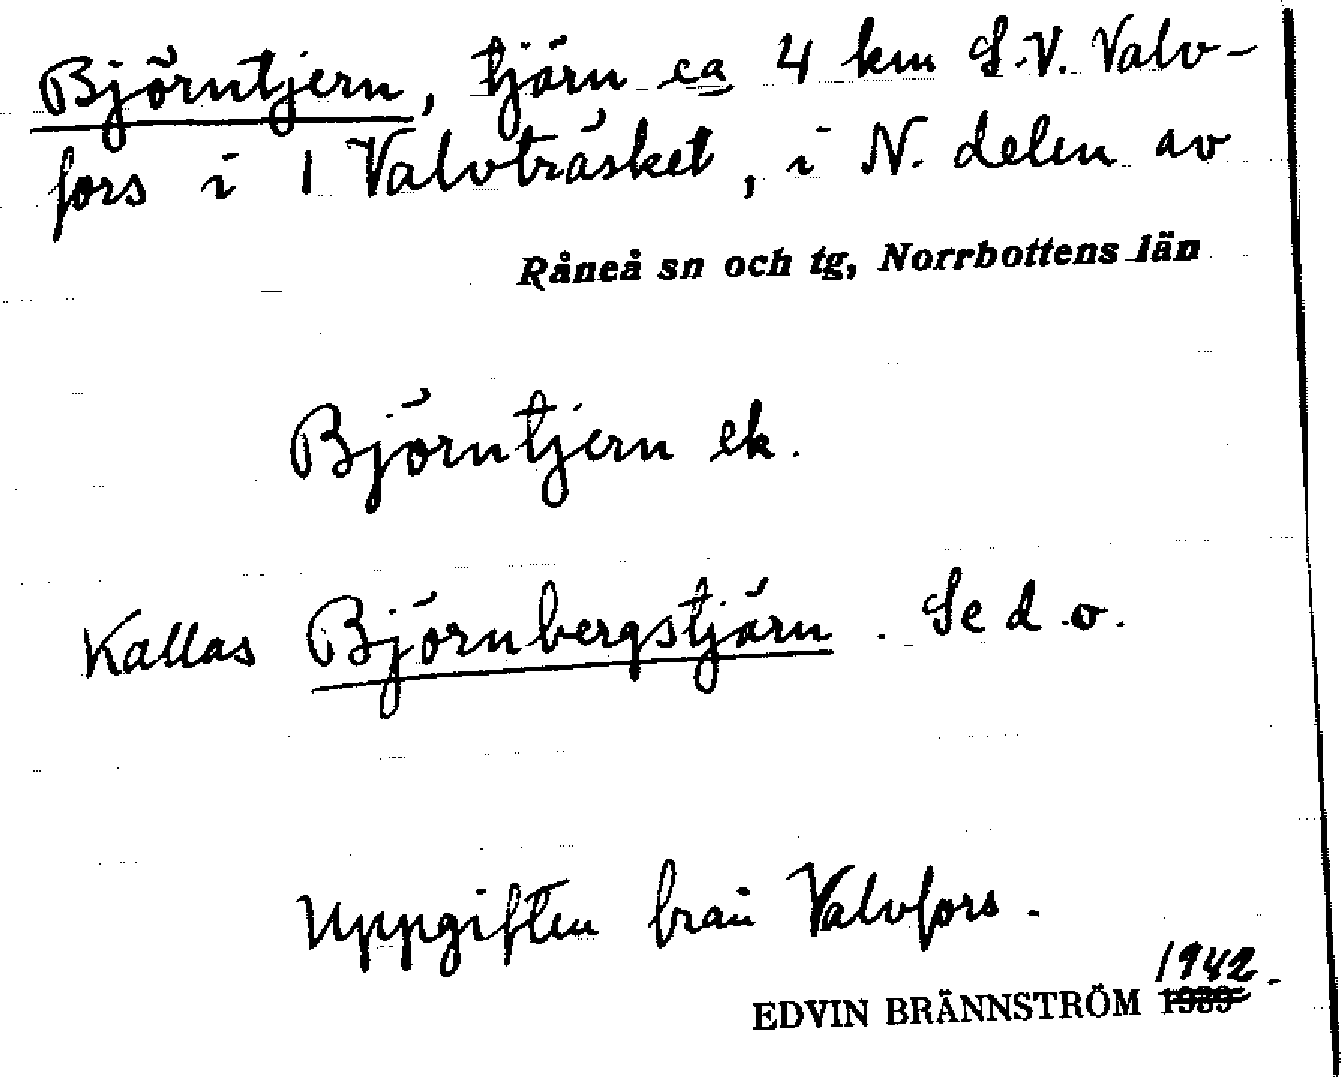 Björntjern, tjärn ca 4 km S.V. Valv-
fors i 1 Valvträsket, i N. delen av
Råneå sn och tg, Norrbottens län
Björntjern ek.
Kallas Björnbergstjärn. Se d.o.
Uppgiften från Valvfors.
1942.
EDVIN BRÄNNSTRÖM 1939